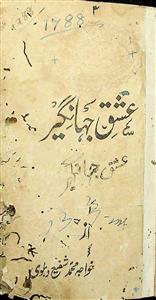 1788
عشق جہانگیر
عشق جہانگیر
از
خواجہ محمد شفیع دہلوی